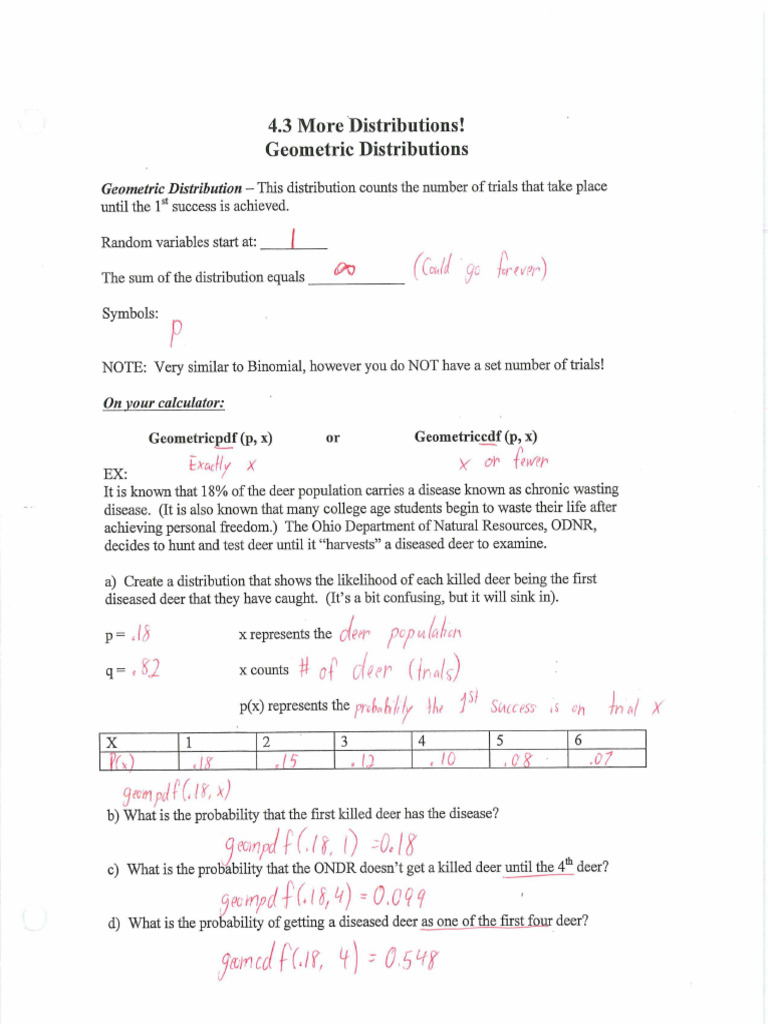 4.3 More Distributions!
Geometric Distributions
Geometric Distribution – This distribution counts the number of trials that take place
until the 1st success is achieved.
Random variables start at: 1
The sum of the distribution equals ∞ (Could go forever)
Symbols:
p
NOTE: Very similar to Binomial, however you do NOT have a set number of trials!
On your calculator:
Geometricpdf (p, x) or Geometriccdf (p, x)
Exactly x x or fewer
EX:
It is known that 18% of the deer population carries a disease known as chronic wasting
disease. (It is also known that many college age students begin to waste their life after
achieving personal freedom.) The Ohio Department of Natural Resources, ODNR,
decides to hunt and test deer until it “harvests” a diseased deer to examine.
a) Create a distribution that shows the likelihood of each killed deer being the first
diseased deer that they have caught. (It’s a bit confusing, but it will sink in).
p = .18 x represents the deer population
q = .82 x counts # of deer (trials)
p(x) represents the probability the 1st success is on trial x
X 1 2 3 4 5 6
P(x) .18 .15 .12 .10 .08 .07
geompdf(.18, x)
b) What is the probability that the first killed deer has the disease?
geompdf(.18, 1) =0.18
c) What is the probability that the ONDR doesn’t get a killed deer until the 4th deer?
geompdf(.18,4) = 0.099
d) What is the probability of getting a diseased deer as one of the first four deer?
geomcdf(.18, 4) = 0.548